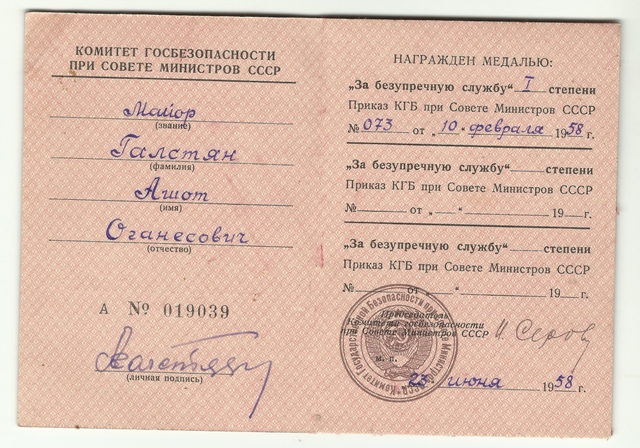 КОМИТЕТ ГОСБЕЗОПАСНОСТИ
ПРИ СОВЕТЕ МИНИСТРОВ СССР
Майор
(звание)
Галстян
(фамилия)
Ашот
(имя)
Оганесович
(отчество)
А № 019039
(личная подпись)
НАГРАЖДЕН МЕДАЛЬЮ:
„За безупречную службу“ I степени
Приказ КГБ при Совете Министров СССР
№ 073 от „10“ февраля 1958 г.
„За безупречную службу“ степени
Приказ КГБ при Совете Министров СССР
№ от „ “ 19 г.
„За безупречную службу“ степени
Приказ КГБ при Совете Министров СССР
№ от „ “ 19 г.
Председатель
Комитета госбезопасности
при Совете Министров СССР И. Серов
м. п.
23 июня 1958 г.